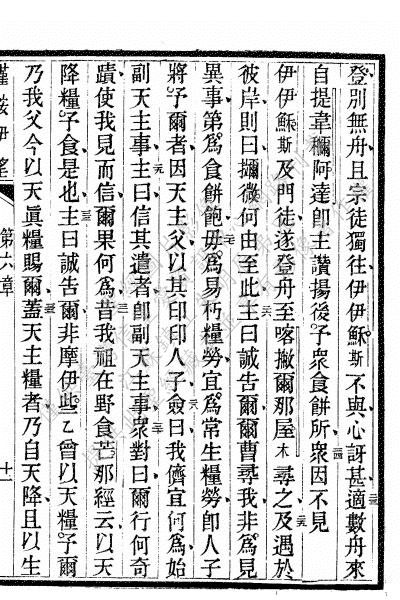 登別無舟且宗徒獨往伊伊穌斯不與心訝甚適數舟來
自提韋穪阿達卽主讚揚後予衆食餅所衆因不見
伊伊穌斯及門徒遂登舟至喀撇爾那屋木尋之及遇於
彼岸則曰穪微何由至此主曰誠告爾爾曹尋我非爲見
異事第爲食餅飽毋爲易朽糧勞宜爲常生糧勞卽人子
將予爾者因天主父以其印印人子僉曰我儕宜何爲始
副天主事主曰信其遣者卽副天主事衆對曰爾行何奇
蹟使我見而信爾果何爲昔我祖在野食瑪那經云以天
降糧予食是也主曰誠告爾非摩伊些乙曾以天糧予爾
乃我父今以天眞糧賜爾蓋天主糧者乃自天降且以生
第六章
十一
二七
二八
二九
三十
三一
三二
三三